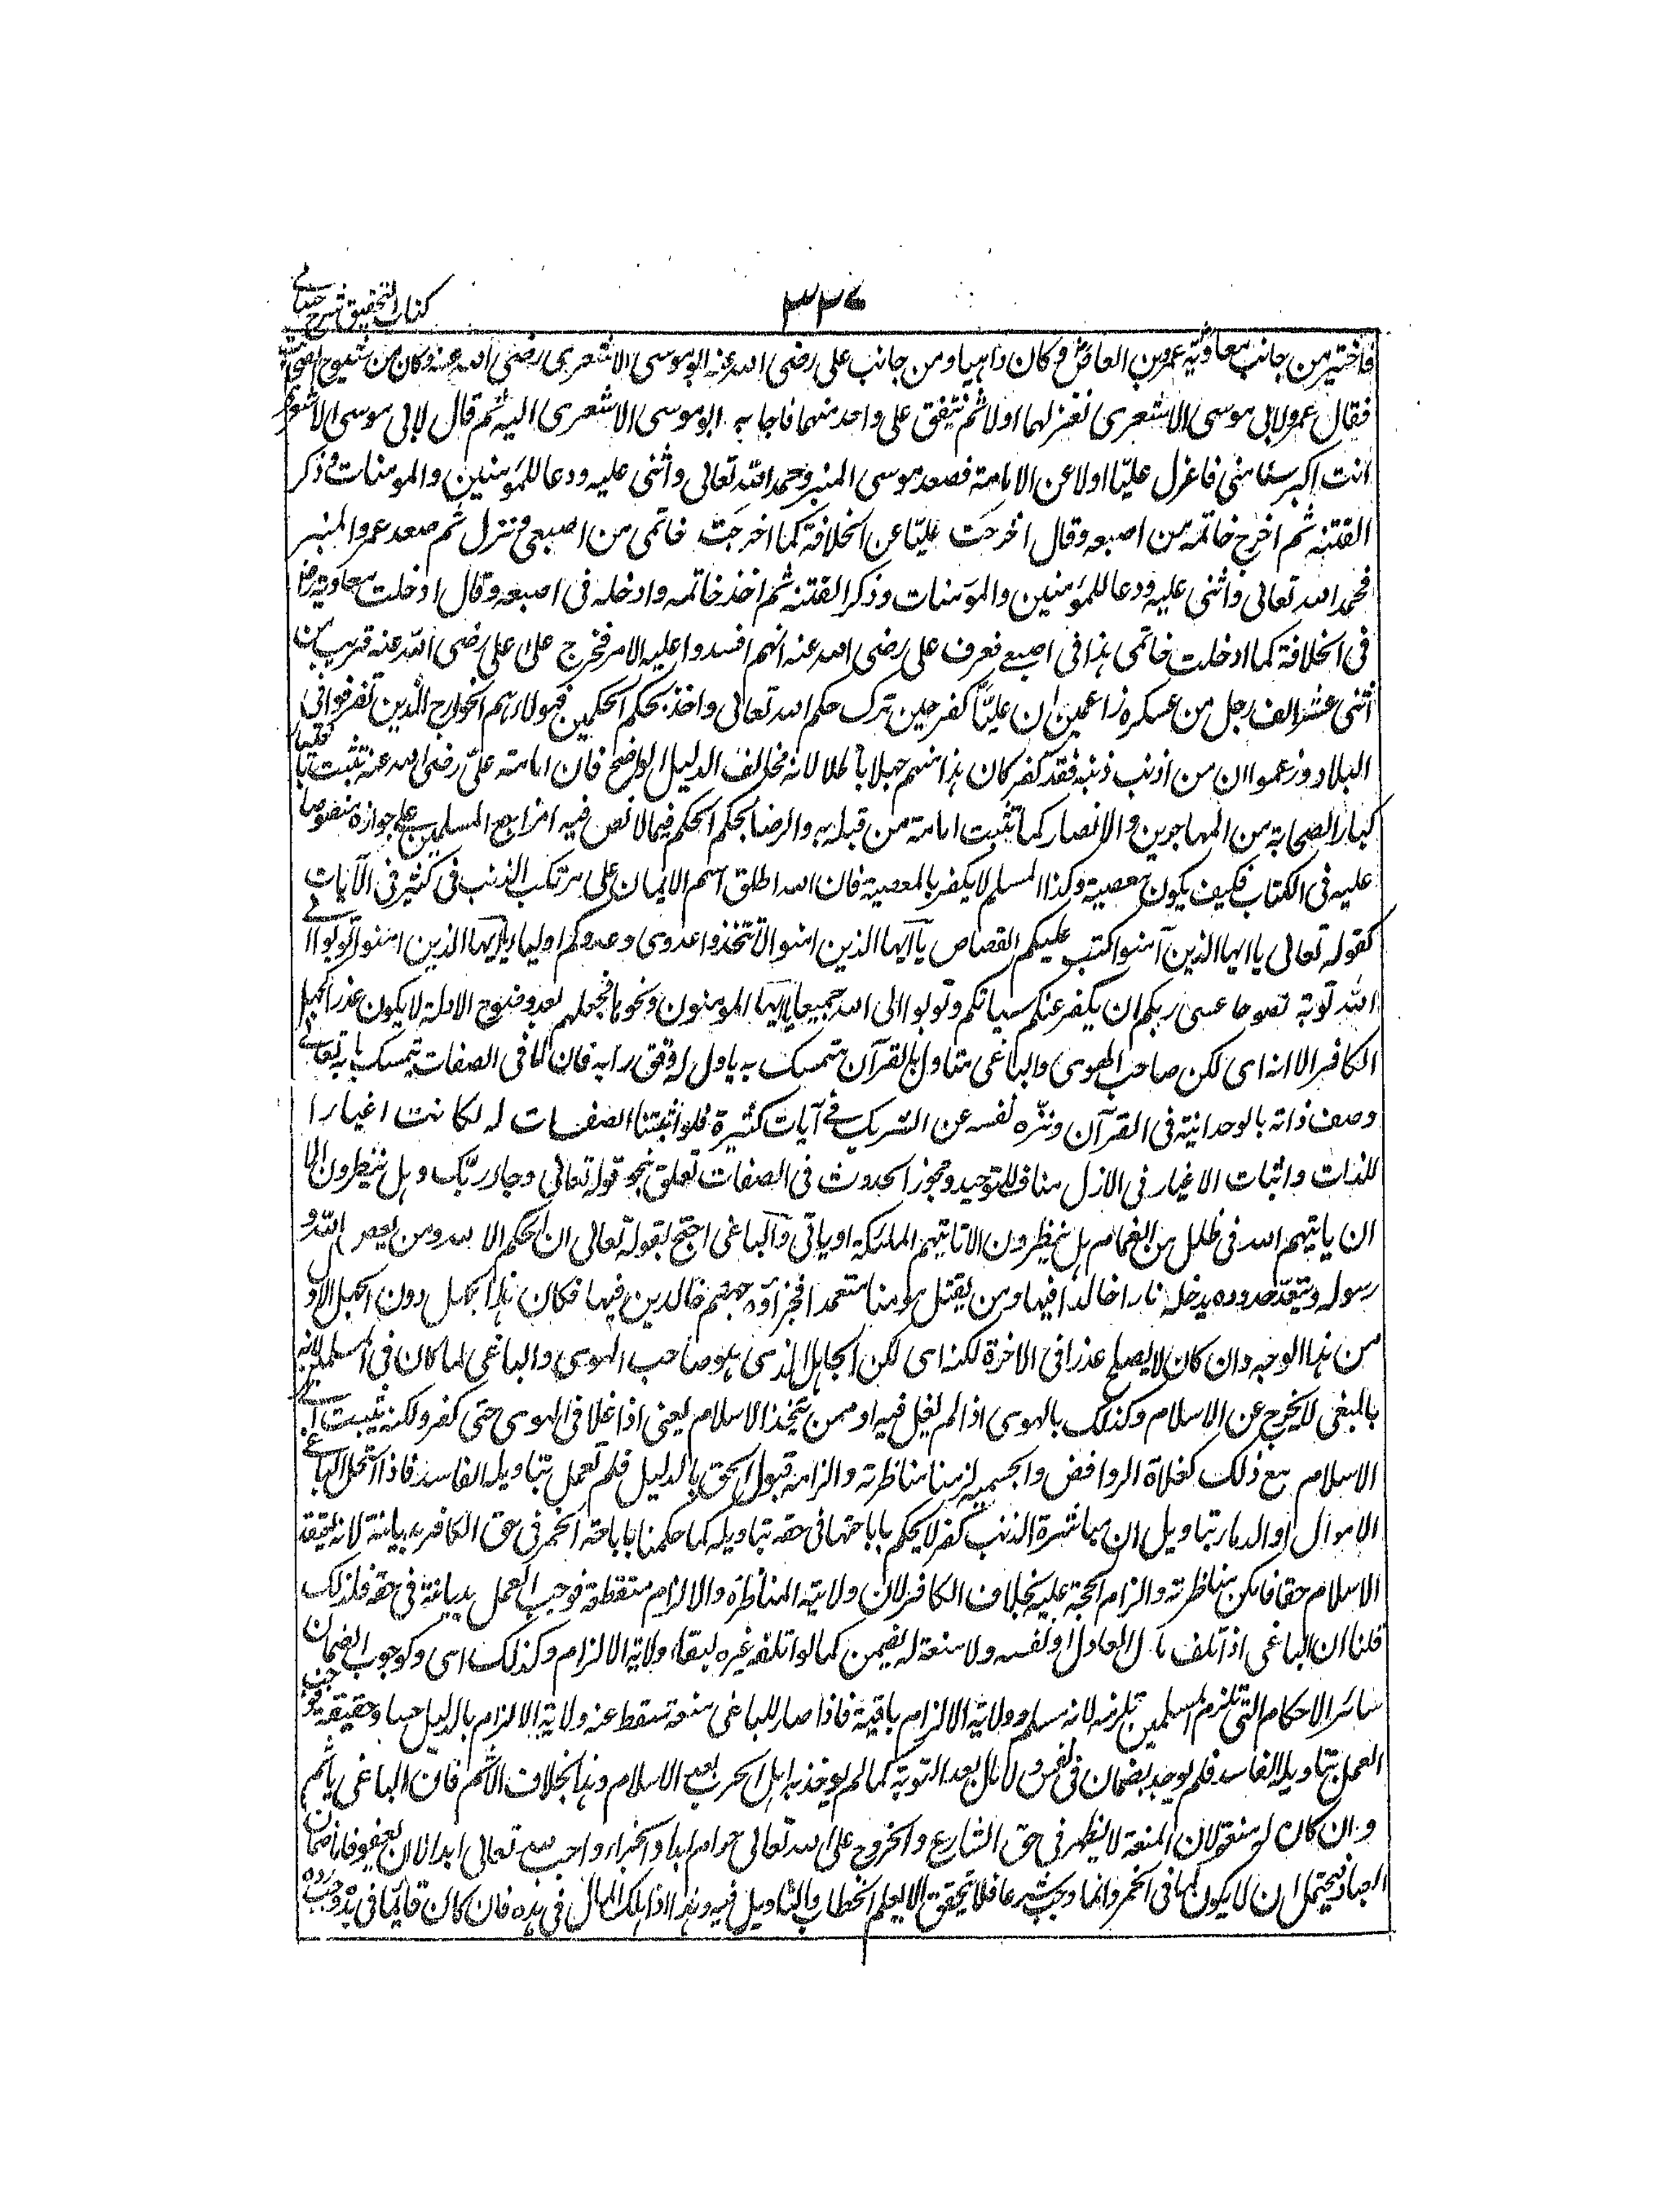 كتاب التحقيق شرح حسامي
٣٣٤
فاختير من جانب معاوية عمرو بن العاص وكان داهيا ومن جانب على رضى الله عنه ابو موسى الاشعرى رضى الله عنه وكان من شيوخ الصحابة
فقال عمرو لابى موسى الاشعرى نعزلهما اولا ثم نتفق على واحد منهما فاجابه ابو موسى الاشعرى اليه ثم قال لابى موسى الاشعرى
انت اكبر سنا منى فاعزل عليّا اولا عن الامامة فصعد موسى المنبر وحمد الله تعالى واثنى عليه ودعا للمؤمنين والمومنات وذكر
الفتنة ثم اخرج خاتمه من اصبعه وقال اخرجت عليّا عن الخلافة كما اخرجت خاتمى من اصبعى ونزل ثم صعد عمرو المنبر
فحمد الله تعالى واثنى عليه ودعا للمؤمنين والمؤمنات وذكر الفتنة ثم اخذ خاتمه وادخله فى اصبعه وقال ادخلت معاوية رض
فى الخلافة كما ادخلت خاتمى هذا فى اصبعى فعرف على رضى الله عنه انهم افسدوا عليه الامر فخرج على على رضى الله عنه قريب من
اثنى عشر الف رجل من عسكره زاعمين ان عليّا كفر حين ترك حكم الله تعالى واخذ بحكم الحكمين فهولاء هم الخوارج الذين تفرقوا فى
البلاد وزعموا ان من اذنب ذنبا فقد كفر كان هذا منهم جهلا باطلا لانه مخالف الدليل الواضح فان امامة علىّ رضى الله عنه تثبت باختيار
كبار الصحابة من المهاجرين والانصار كما تثبت امامة من قبله به والرضا بحكم الحكم فيما لا نص فيه امر اجمع المسلمين على جوازه منصوصا
عليه فى الكتاب فكيف يكون معصية وكذا المسلم لا يكفر بالمعصية فان الله اطلق اسم الايمان على مرتكب الذنب فى كثير فى الآيات
كقوله تعالى يا ايها الذين آمنوا كتب عليكم القصاص يا ايها الذين امنوا لا تتخذوا عدوى وعدوكم اولياء يا ايها الذين امنوا توبوا الى
الله توبة نصوحا عسى ربكم ان يكفر عنكم سياتكم وتوبوا الى الله جميعا ايها المومنون ونحوها فجهلهم بعد وضوح الادلة لا يكون عذرا كجهل
الكافر الا انه اى لكن صاحب الهوى والباغى متاول بالقرآن متمسك به ياول له وفق رأيه فان نافى الصفات تمسك بانه تعالى
وصف ذاته بالوحدانية فى القرآن ونزّه نفسه عن الشريك فى آيات كثيرة فلو اثبتنا الصفات له لكانت اغيارا
للذات واثبات الاغيار فى الازل مناف للتوحيد ومجوز الحدوث فى الصفات تعلق بنحو قوله تعالى وجاء ربّك وهل ينظرون الا
ان ياتيهم الله فى ظلل من الغمام هل ينظرون الا تاتيهم الملئكة او ياتى والباغى احتج بقوله تعالى ان الحكم الا لله ومن يعص الله و
رسوله ويتعدّ حدوده يدخله نارا خالدا فيها ومن يقتل مومنا متعمدا فجزاؤه جهنم خالدين فيها فكان هذا الجهل دون الجهل الاول
من هذا الوجه وان كان لا يصلح عذرا فى الاخرة لكنه اى لكن الجاهل الذى هو صاحب الهوى والباغى لما كان فى المسلمين لانه
بالبغى لا يخرج عن الاسلام وكذلك بالهوى اذا لم يغل فيه او ممن يتخذ الاسلام يعنى اذا غلا فى الهوى حتى كفر ولكنه ينسب الى
الاسلام مع ذلك كغلاة الروافض والمجسمة لزمنا مناظرته والزامه قبول الحق بالدليل فلم نعمل بتاويله الفاسد فاذا استحل الباغى
الاموال او الدماء بتاويل ان مباشرة الذنب كفر لا يحكم باباحتها فى حقه بتاويله كما حكمنا باباحة الخمر فى حق الكافر بديانة لانه يعتقد
الاسلام حقا فامكن مناظرته والزام الحجة عليه بخلاف الكافر لان ولاية المناظرة والالزام منقطعة فوجب العمل بديانة فى حقه فلذلك
قلنا ان الباغى اذا تلف مال العادل او نفسه ولا منعة له يضمن كما لو اتلفه غيره لبقاء ولاية الالزام وكذلك اى وكوجوب الضمان
سائر الاحكام التى تلزم المسلمين تلزمه لانه مسلم وولاية الالزام باقية فاذا صار للباغى منعة سقط عنه ولاية الالزام بالدليل حسا وحقيقة فوجب
العمل بتاويله الفاسد فلم يوخذ بضمان فى نفس ولا مال بعد التوبة كما لم يوخذ به اهل الحرب بعد الاسلام وهذا بخلاف الاثم فان الباغى ياثم
وان كان له منعة لان المنعة لا يظهر فى حق الشارع والخروج على الله تعالى حرام ابدا والجزاء واجب لله تعالى ابدا الا ان يعفو فاما ضمان
العباد فيحتمل ان لا يكون كما فى الخمر وانما وجب شرعا فلا يتحقق الا بعلم الخطاب والتاويل فيه وهذا اذا هلك المال فى يده فان كان قائما فى يده وجب رده